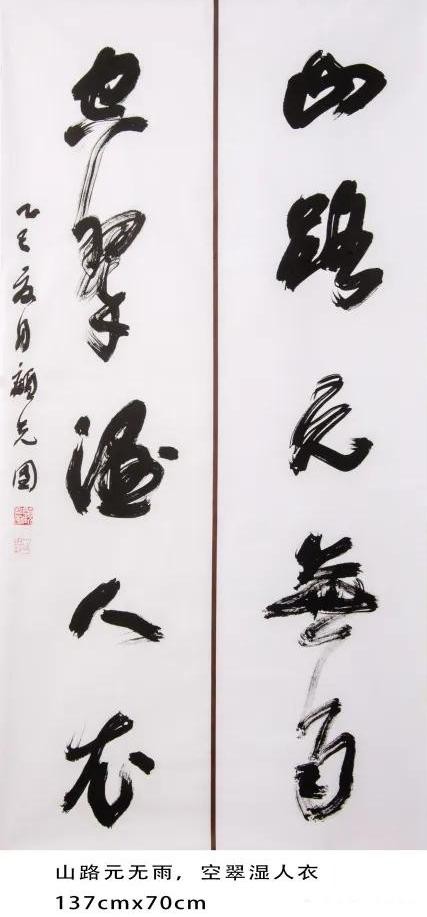 山路元無雨
空翠濕人衣
乙巳夏月
山路元无雨，空翠湿人衣
137cmx70cm